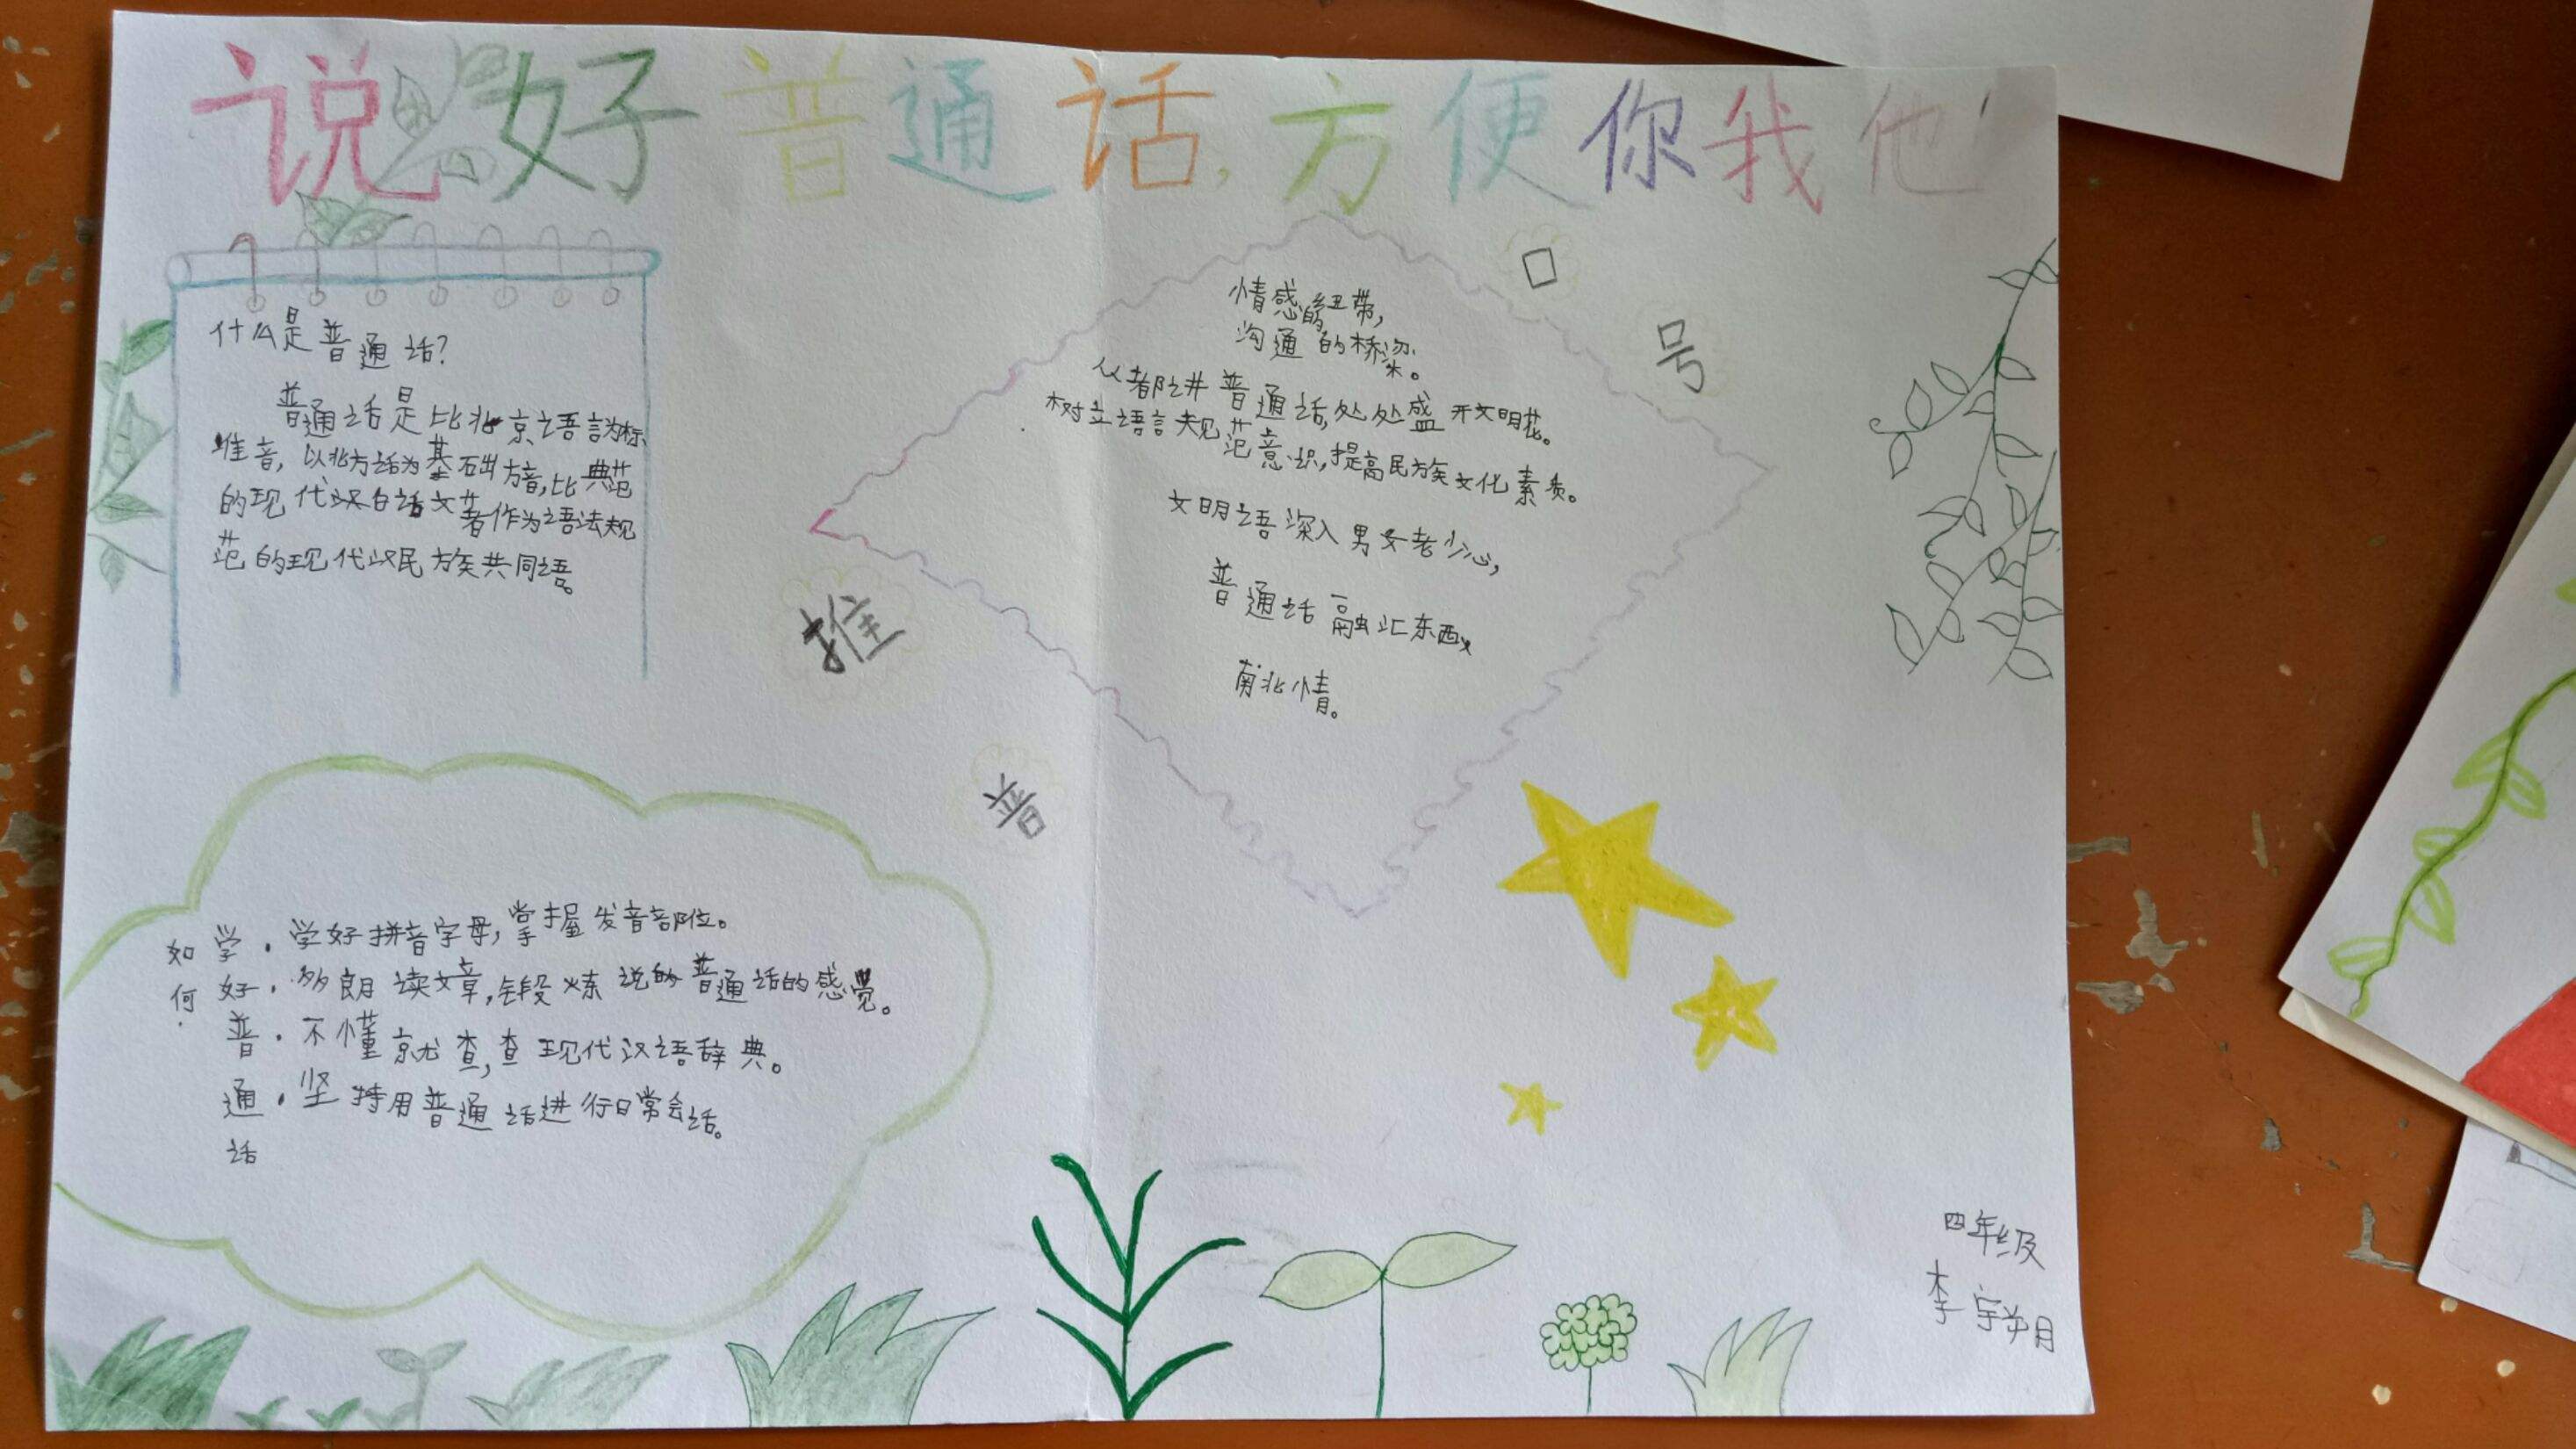 说好普通话,方便你我他!
什么是普通话?
普通话是比北京语言为标
准音,以北方话为基础方音,比典范
的现代汉白话文著作为语法规
范的现代汉民族共同语。
推
普
口
号
情感的纽带,
沟通的桥梁。
从都讲普通话,处处盛开文明花。
树立语言规范意识,提高民族文化素质。
文明语深入男女老少心,
普通话融汇东西
南北情。
如何
学好普通话
·学好拼音字母,掌握发音部位。
·多朗读文章,锻炼说的普通话的感觉。
·不懂就查,查现代汉语辞典。
·坚持用普通话进行日常会话。
四年级
李宇